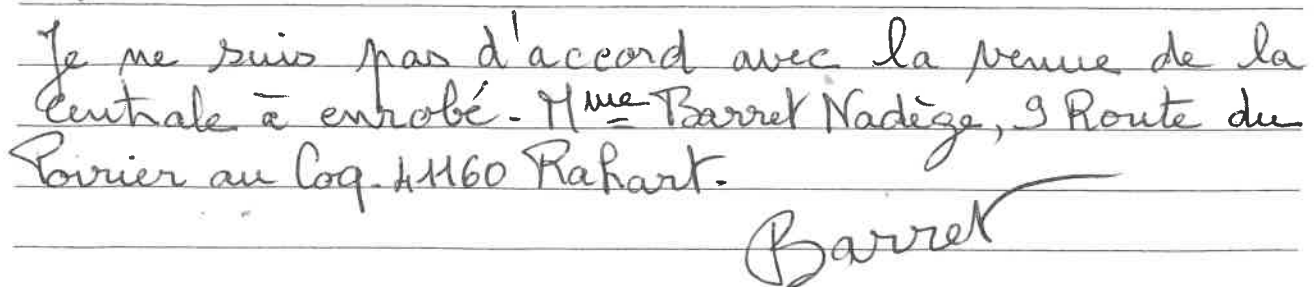 Je ne suis pas d'accord avec la venue de la
centrale à enrobé. Mme Barret Nadège, 9 Route du
Poirier au Coq. 41160 Rahart.
Barret